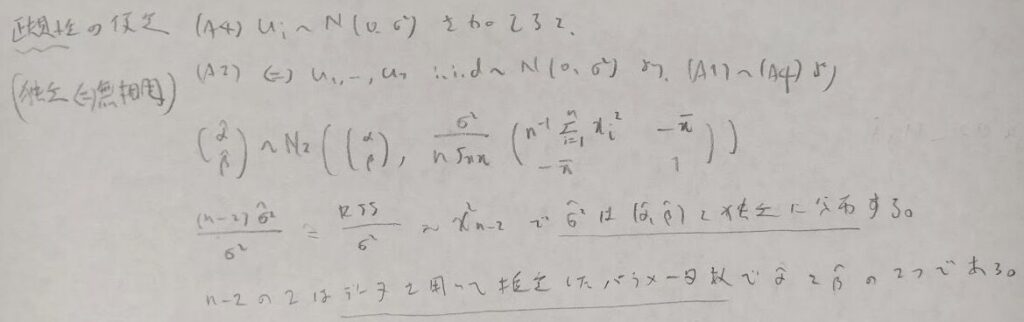 正規性の仮定 (A4) u_i ~ N(0, σ²) をもつとすると、
(独立⇔無相関) (A2) ⇔ u_1, …, u_n i.i.d ~ N(0, σ²) より、(A1)~(A4)より
(α̂ β̂) ~ N_2((α β), σ²/(n S_xx) (n⁻¹ Σ_{i=1}^{n} x_i² −x̄ −x̄ 1))
(n-2)σ̂²/σ² = RSS/σ² ~ χ²_{n-2} で σ̂² は (α̂, β̂) と独立に分布する。
n-2の2はデータを用いて推定したパラメータ数で α̂ と β̂ の2つである。